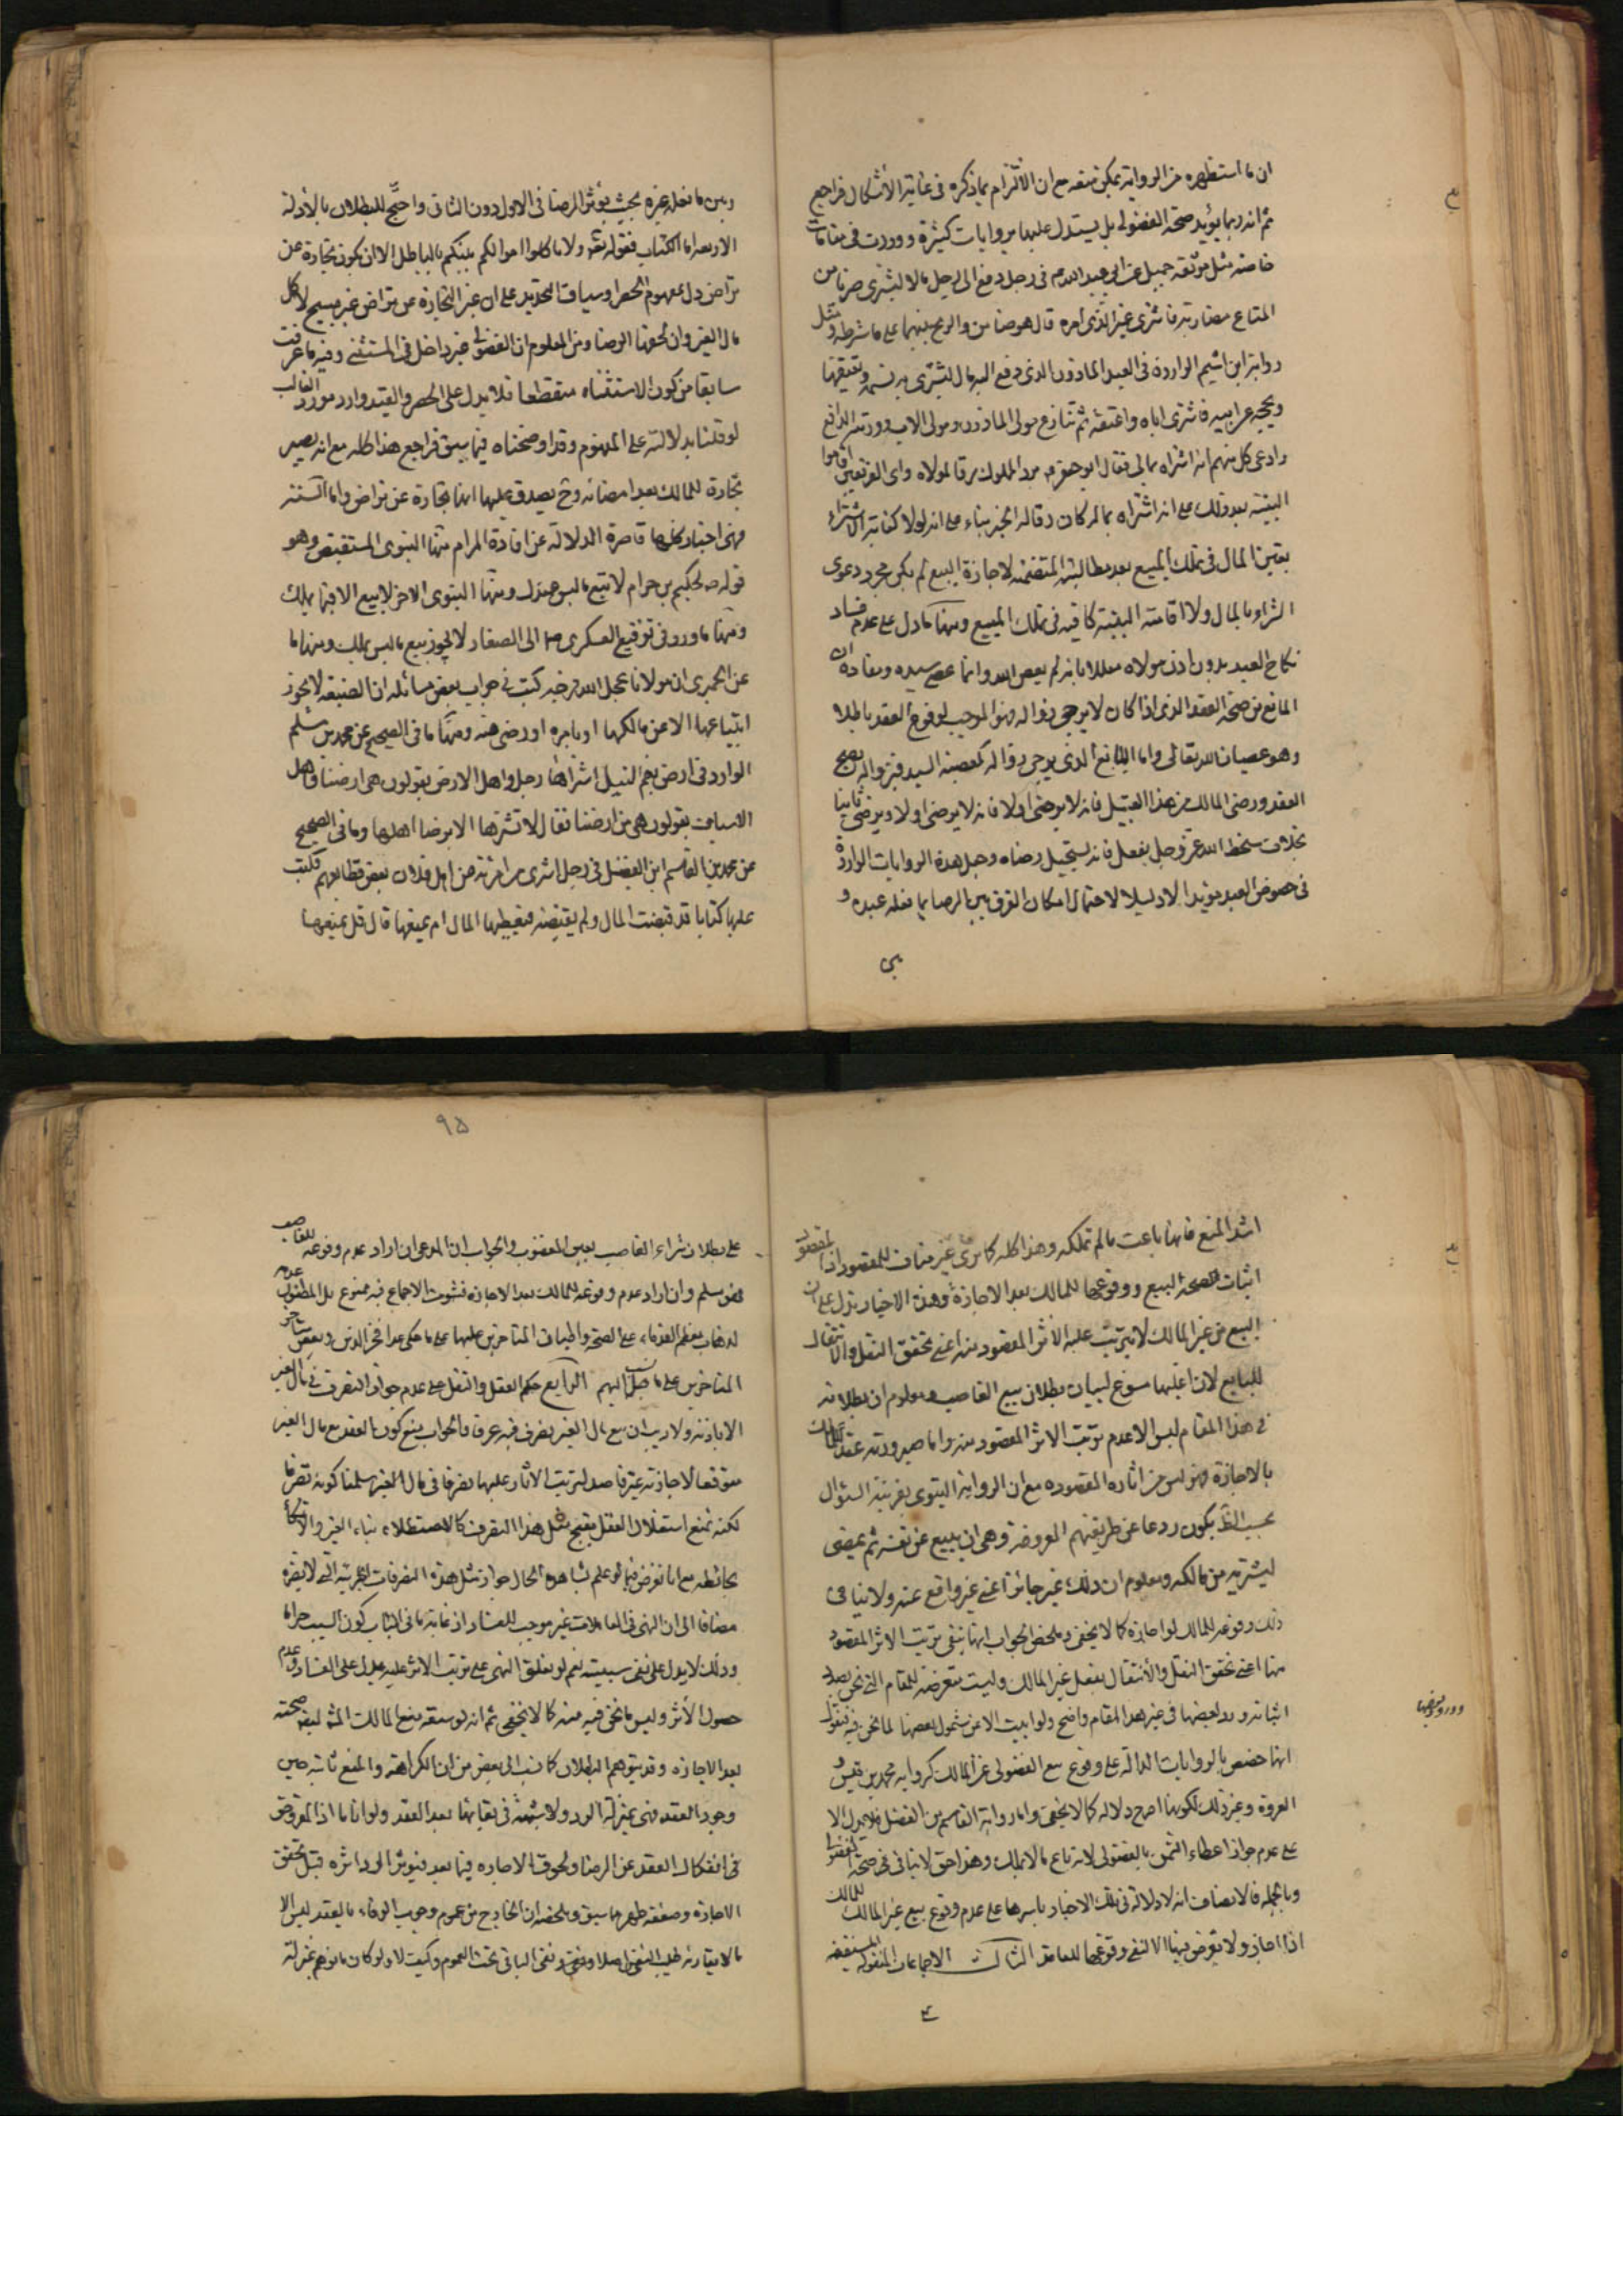 ان ما استظهره من الرواية يمكن منعه مع ان الالتزام بما ذكره في غاية الأشكال فراجع
ثم انه ربما يؤيد صحة الفضولي بل يستدل عليها بروايات كثيرة ووردت في مقامات
خاصة مثل موثقة جميل عن ابي عبد الله ع في رجل دفع الى رجل مالا ليشترى ضربا من
المتاع مضاربة فاشترى غير الذى امره قال هو ضامن والربح بينهما على ما شرطه ومثل
رواية ابن اشيم الواردة في العبد الماذون الذى دفع اليه مال ليشترى به نسمة ويعتقها
ويحجه عن ابيه فاشترى اباه واعتقه ثم تنازع مولى الماذون ومولى الاب وورثة الدافع
وادعى كل منهم انه اشتراه بمالى فقال ابو جعفر ع يرد المملوك رقا لمولاه واى الفريقين اقاموا
البينة بعد ذلك على انه اشتراه بماله كان رقا له الخبر بناء على انه لولا كفاية الاشتراء
بعين المال في تملك المبيع بعد مطالبته المتضمنة لاجازة البيع لم يكن مجرد دعوى
الشراء بالمال ولا اقامة البينة كافية في تملك المبيع ومنها ما دل على عدم فساد
نكاح العبد بدون اذن مولاه معللا بانه لم يعص الله وانما عصى سيده ومفاده ان
المانع من صحة العقد الذى اذا كان لا يرجى زواله فهو الموجب لوقوع العقد باطلا
وهو عصيان الله تعالى واما المانع الذى يرجى زواله كمعصية السيد فبزواله يصح
العقد ورضى المالك من هذا القبيل فانه لا يرضى اولا فانه لا يرضى اولا ويرضى ثانيا
بخلاف سخط الله عز وجل بفعل فانه يستحيل رضاه وجعل هذه الروايات الواردة
في خصوص العبد مؤيدا لا دليلا لاحتمال امكان الفرق بين الرضا بما فعله عبده و
بين
وبين ما فعله غيره بحيث يؤثر الرضا في الاول دون الثاني واحتج للبطلان بالأدلة
الاربعة اما الكتاب فقوله تعالى ولا تاكلوا اموالكم بينكم بالباطل الا ان تكون تجارة عن
تراض دل بمفهوم الحصر او سياق التحديد على ان غير التجارة عن تراض غير مبيح لاكل
مال الغير وان لحقها الرضا ومن المعلوم ان الفضولي غير داخل في المستثنى وفيه ما عرفت
سابقا من كون الاستثناء منقطعا فلا يدل على الحصر والقيد وارد مورد الغالب
لو قلنا بدلالته على المفهوم وقد اوضحناه فيما سبق فراجع هذا كله مع انه يصير
تجارة للمالك بعد امضائه وح يصدق عليها انها تجارة عن تراض واما السنة
فهى اخبار كلها قاصرة الدلالة عن افادة المرام منها النبوى المستفيض وهو
قوله ص لحكيم بن حزام لا تبع ما ليس عندك ومنها النبوى الاخر لا بيع الا فيما يملك
ومنها ما ورد في توقيع العسكرى ع الى الصفار لا يجوز بيع ما ليس يملك ومنها ما
عن الحميرى ان مولانا عجل الله فرجه كتب في جواب بعض مسائله ان الضيعة لا يجوز
ابتياعها الا عن مالكها او بامره او رضى منه ومنها ما في الصحيح عن محمد بن مسلم
الوارد في ارض بفم النيل اشتراها رجل واهل الارض يقولون هى ارضنا واهل
الاسياف يقولون هى من ارضنا فقال لا تشترها الا برضا اهلها وما في الصحيح
عن محمد بن القاسم ابن الفضل في رجل اشترى من امرئة من ال فلان بعض قطايعهم فكتب
عليها كتابا قد قبضت المال ولم يقبضه فيعطيها المال ام يمنعها قال قل يمنعها
اشد المنع فانها باعت ما لم تملكه وهذا كله كما ترى غير مناف للمقصود اذا المقصود
اثبات صحة البيع ووقوعها للمالك بعد الاجازة وهذه الاخبار تدل على ان
البيع من غير المالك لا يترتب عليه الاثر المقصود منه اعنى تحقق النقل والانتقال
للبايع لان اغلبها مسوغ لبيان بطلان بيع الغاصب ومعلوم ان بطلانه
في هذا المقام ليس الا عدم ترتب الاثر المقصود منه واما صيرورته عقد للمالك
بالاجازة فهو ليس من اثاره المقصوده مع ان الرواية النبوى بقرينة السؤال
بحسب الظ يكون ردعا عن طريقتهم المعروفة وهى ان يبيع عن نفسه ثم يمضى
ليشتريه من مالكه ومعلوم ان ذلك غير جائز اعنى غير واقع عنه ولا ينافى
ذلك وقوعه للمالك لو اجازه كما لا يخفى وملخص الجواب انها ينفى ترتب الاثر المقصود
منها اعنى تحقق النقل والأنتقال بفعل غير المالك وليست متعرضة للمقام الذي نحن بصدد
اثباته وورود بعضها في غير هذا المقام واضح ولو ابيت الا عن شمول بعضها لما نحن فيه فنقول
انها خصص بالروايات الدالة على وقوع بيع الفضولى عن المالك كرواية محمد بن قيس و
العروة وغير ذلك لكونها اصرح دلالة كما لا يخفى واما رواية القاسم بن الفضل فلا يدل الا
على عدم جواز اعطاء الثمن بالفضولى لانه باع ما لا يملك وهذا حق لا ينافى في صحة الفضولي
وبالجملة فالانصاف انه لا دلالة في تلك الاخبار باسرها على عدم وقوع بيع غير المالك للمالك
اذا اجاز ولا تعرض فيها الا لنفى وقوعها للعاقد الثالث الاجماعات المنقولة المستفيضة
ع
وورود بعضها
٩٥
على بطلان شراء الغاصب بعين المغصوب والجواب ان المدعى ان اراد عدم وقوعه للغاصب
فهو سلم وان اراد عدم وقوعه للمالك بعد الاجازة فثبوت الاجماع فيه ممنوع بل المظنون عدمه
لذهاب معظم القدماء على الصحة واطباق المتاخرين عليها على ما حكى عدا فخر الدين وبعض متاخرى
المتاخرين على ما نسب اليهم الرابع حكم العقل والنقل على عدم جواز التصرف في مال الغير
الا باذنه ولا ريب ان بيع مال الغير تصرف فيه عرفا والجواب بمنع كون العقد مع مال الغير
متوقعا لاجازته غير قاصد لترتيب الاثار عليها تصرفا في مال الغير سلمنا كونه تصرفا
لكنه نمنع استقلال العقل بقبح مثل هذا التصرف كالاستظلاء بناء الغير والاتكاء
بحائطه مع انا نفرض فيما لو علم بشاهد الحال جواز مثل هذه التصرفات الجزئية التى لا يضره
مضافا الى ان النهى في المعاملات غير موجب للفساد اذ غاية ما في الباب كون السبب حراما
وذلك لا يدل على نفى سببيته نعم لو تعلق النهى على ترتب الاثر عليه يدل على الفساد وعدم
حصول الأثر وليس ما نحن فيه منه كما لا يخفى ثم انه لو سبقه منع المالك المش ايضا صحته
بعد الاجازه وقد يتوهم البطلان كما نسب الى بعض من ان الكراهة والمنع ثابتة حين
وجود العقد فهى بمنزلة الرد ولا شبهة في بقائها بعد العقد ولو انا ما اذا المفروض
في انفكاك العقد عن الرضا ولحوق الاجازه فيما بعد فيؤثر الرد اثره قبل تحقق
الاجازة وضعفه ظهر مما سبق وملخصه ان الخارج من عموم وجوب الوفاء بالعقد ليس الا